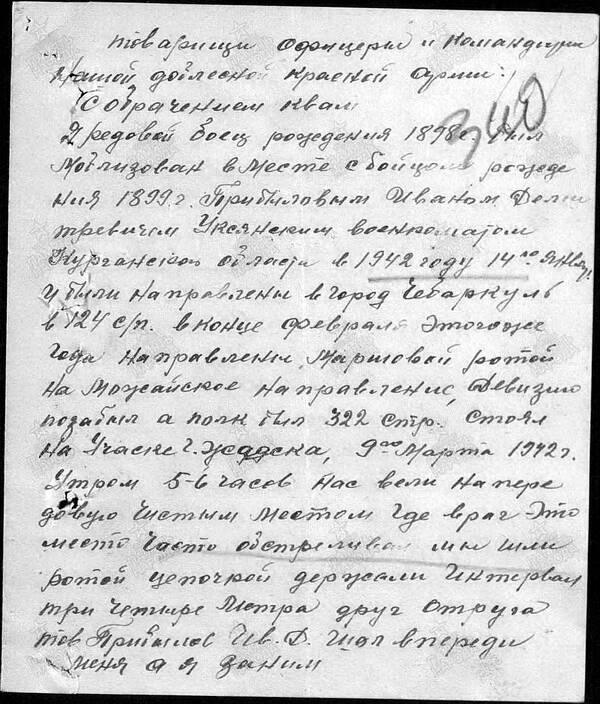 товарищи офицеры и командиры
Нашой доблесной красной армии:
С обрачением квам
Я редовой боец рождения 1898г. был
Моблизован в месте с бойцом рожде
ния 1899г. Прибыловым Иваном Дми
тревичем Уксянским военкоматом
Курганской области в 1942 году 14го янв.
и были направлены в город Чебаркуль
в 124 с/п. в конце февраля этогоже
года направлены Маршовой ротой
на Можайское направление, Девизию
позабыл а полк был 322 стр. стоял
на Учаске г. Жадска, 9го Марта 1942г.
Утром 5-6 часов нас вели напере
довую чистым местом где враг это
место часто обстреливал мы шли
ротой цепочкой держали интервал
три четыре метра друг отруга
тов Прибылов Ив. Д. шол впереди
меня а я заним